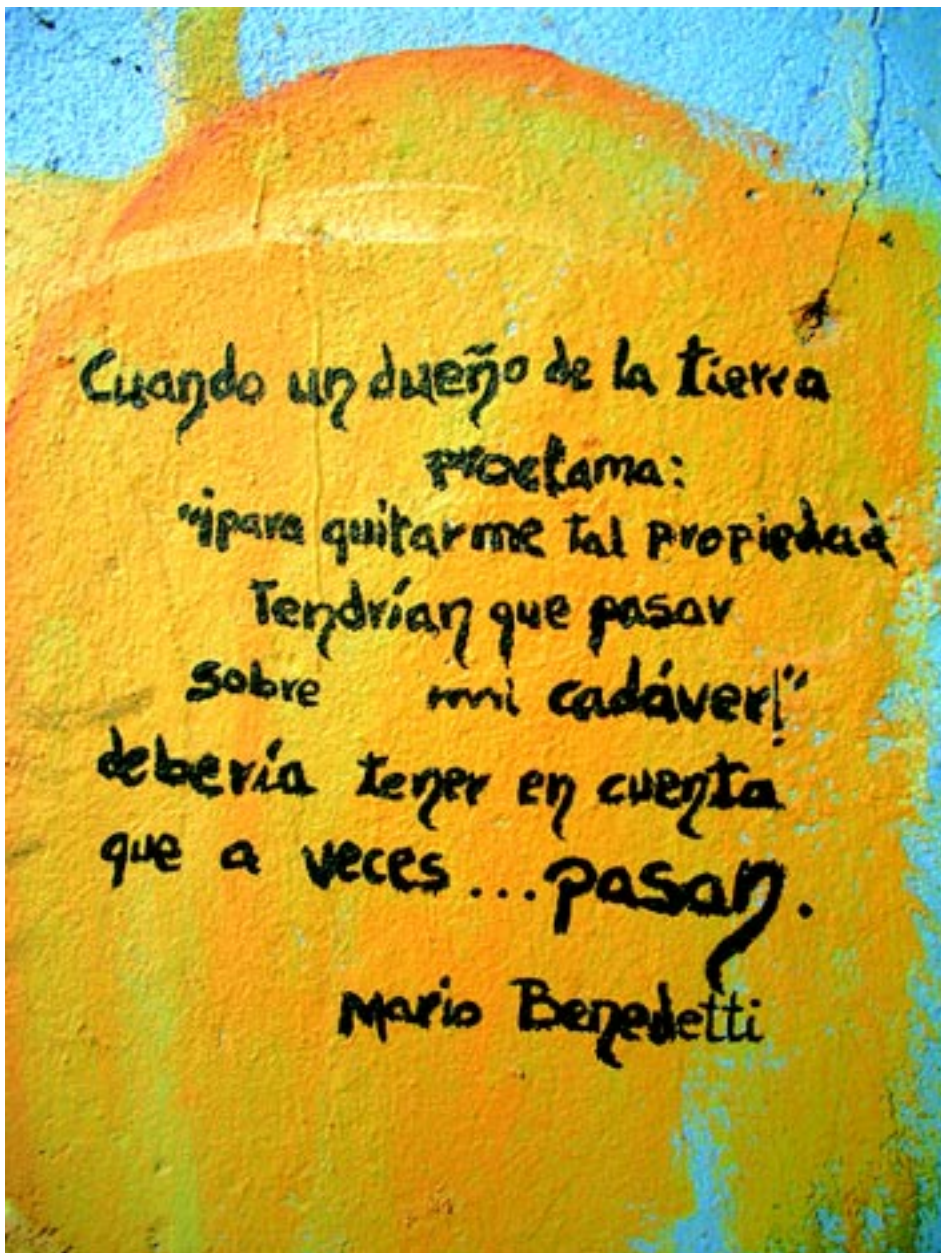 Cuando un dueño de la tierra
proclama:
"¡para quitarme tal propiedad
Tendrían que pasar
sobre mi cadáver!"
debería tener en cuenta
que a veces...pasan.
Mario Benedetti